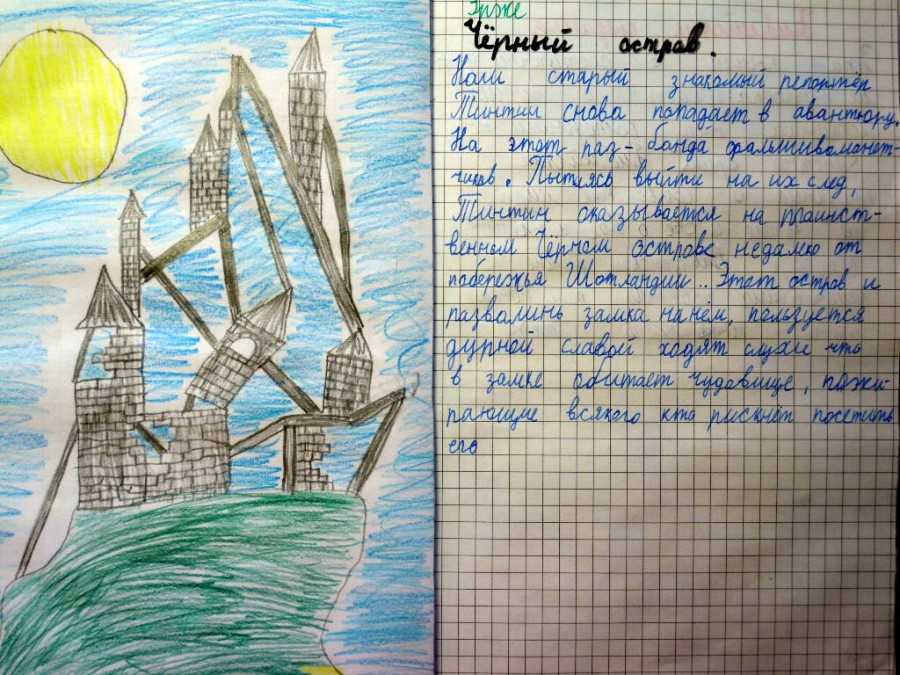 Эрже
Чёрный остров.
Наш старый знакомый репортёр
Тинтин снова попадает в авантюру.
На этот раз - банда фальшивомонет-
чиков. Пытаясь выйти на их след,
Тинтин оказывается на таинст-
венном Чёрном острове недалеко от
побережья Шотландии.. Этот остров и
развалинь замка на нём, пользуется
дурной славой ходят слухи что
в замке обитает чудовище, пожи-
рающие всякого кто рискнёт посетить
его